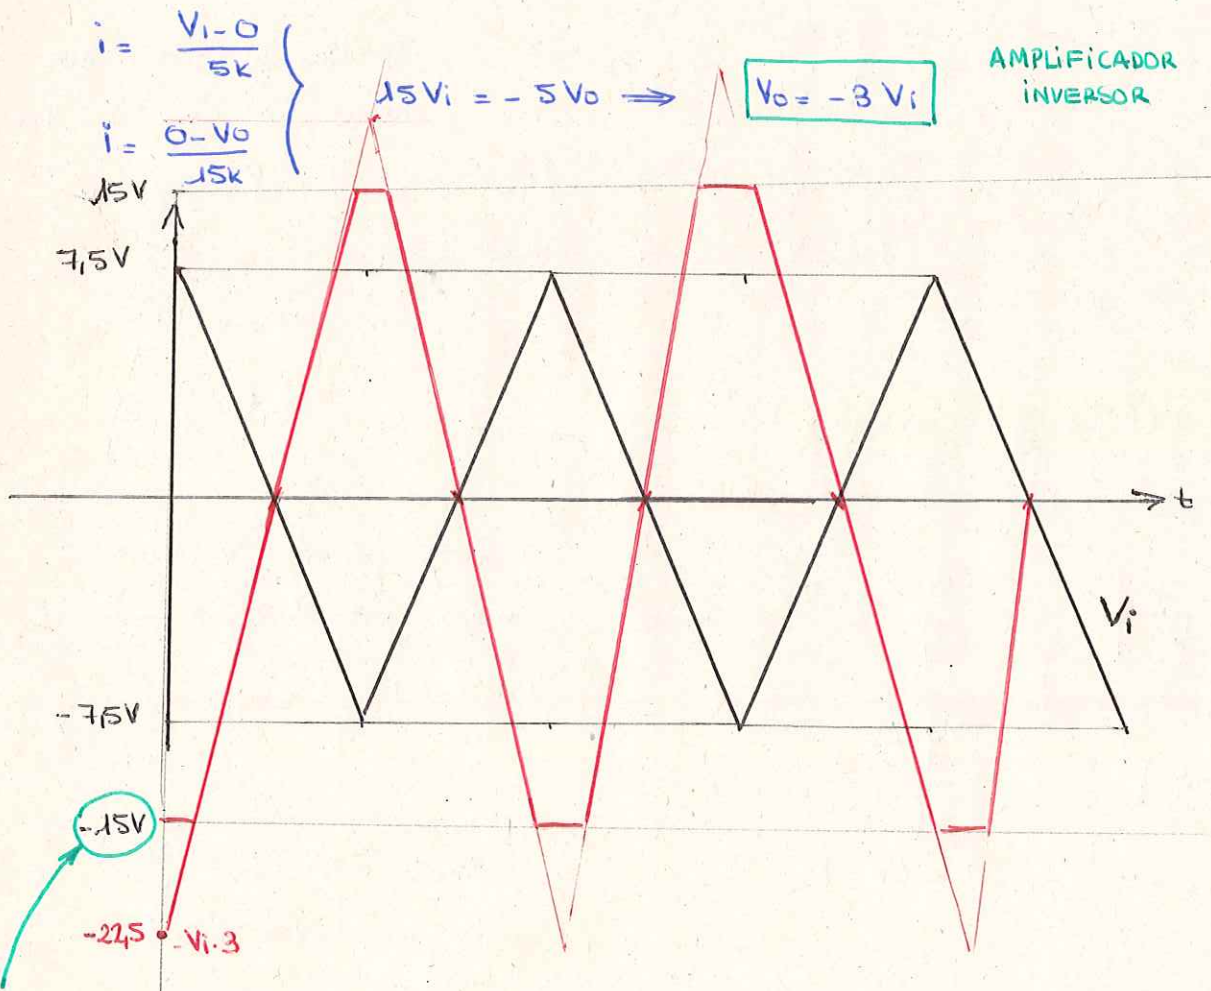 i = Vi-0 / 5k
i = 0-V0 / 15k
15Vi = - 5V0 ⟹ V0 = - 3 Vi
AMPLiFiCADOR
iNVERSOR
15V
7,5V
t
Vi
-7,5V
-15V
-22,5 -Vi·3